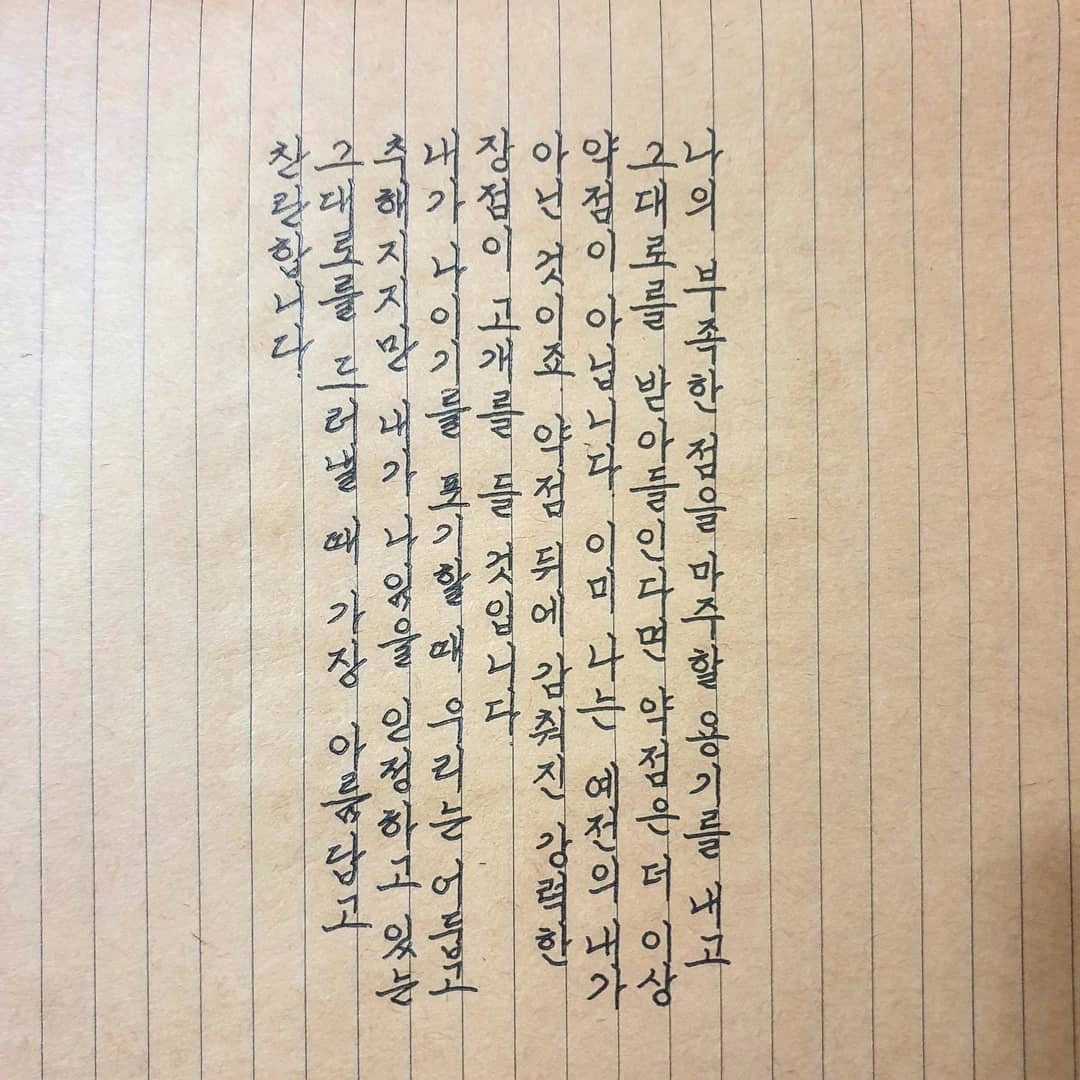 나의 부족한 점을 마주할 용기를 내고
그대로를 받아들인다면 약점은 더 이상
약점이 아닙니다 이미 나는 예전의 내가
아닌 것이죠 약점 뒤에 감춰진 강력한
장점이 고개를 들 것입니다.
내가 나이기를 포기할 때 우리는 어둡고
추해지지만 내가 나임을 인정하고 있는
그대로를 드러낼 때 가장 아름답고
찬란합니다.